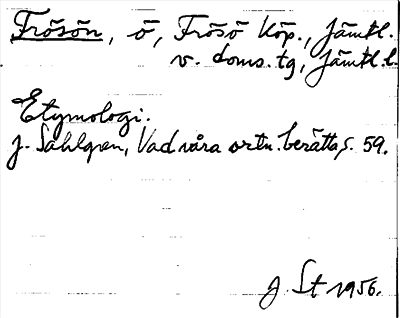 Frösön, ö, Frösö köp., Jämtl.
v. doms.tg, Jämtl.l.
Etymologi.
J. Sahlgren, Vad våra ortn. berätta, s. 59.
J St 1956.